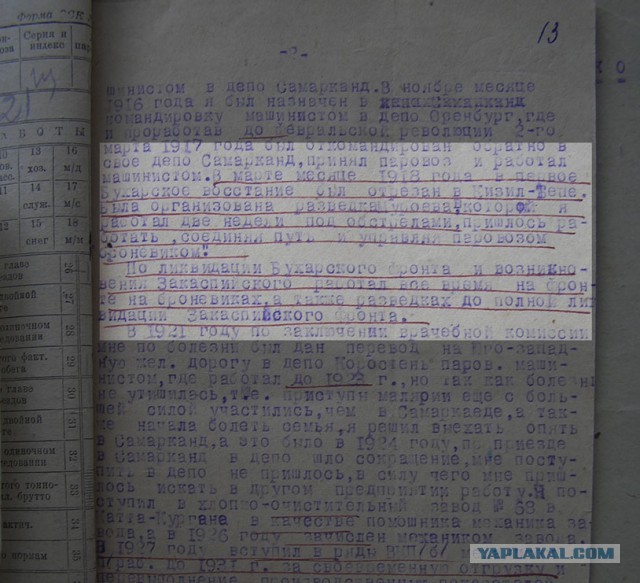 13
- 2 -
шинистом в депо Самарканд.В ноябре месяце
1916 года я был назначен в
командировку машинистом в депо Оренбург,где
и проработав до Февральской революции 2-го
марта 1917 года был откомандирован обратно в
свое депо Самарканд,принял паровоз и работал
машинистом.В марте месяце 1918 года в первое
Бухарское восстание был отрезан в Кизил-Тепе.
Была организована разведка которой я
работал две недели под обстрелами,пришлось ра-
ботать ,соединяя путь и управляя паровозом
броневиком.
По ликвидации Бухарского фронта и возникно-
вения Закаспийского работал все время на фрон-
те на броневиках,а также разведках до полной лик
видации Закаспийского фронта.
В 1921 году по заключении врачебной комиссии
мне по болезни был дан перевод на Юго-запад-
ную жел. дорогу в депо Коростень паров. маши-
нистом,где работал до 1923 г.,но так как болезнь
не утишилась,т.е. приступы малярии еще с боль-
шей силой участились,чем в Самаркаеде,а так-
же начала болеть семья,я решил выехать опять
в Самарканд,а это было в 1924 году,по приезде
в Самарканд в депо шло сокращение,мне посту-
пить в депо не пришлось,в силу чего мне приш-
лось искать в другом предприятии работу.Я по-
ступил в хлопко-очистительный завод № 68 в
Катта-Кургана в качестве помошника механика за
вода,а в 1926 году зачислен механиком завода.
В 1927 году вступил в ряды ВКП/б/
до 1931 г. за своевременную отгрузку и
Форма
Серия и
индекс
БОТЫ
13 16
хоз. м/д
14 17
служ. м/с
12 15 18
снег м/м
26
27
28
29
30
31
32
33
34
35
YAPLAKAL.COM